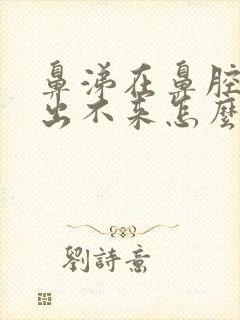 鼻涕在鼻腔
出不来怎麼
劉詩意